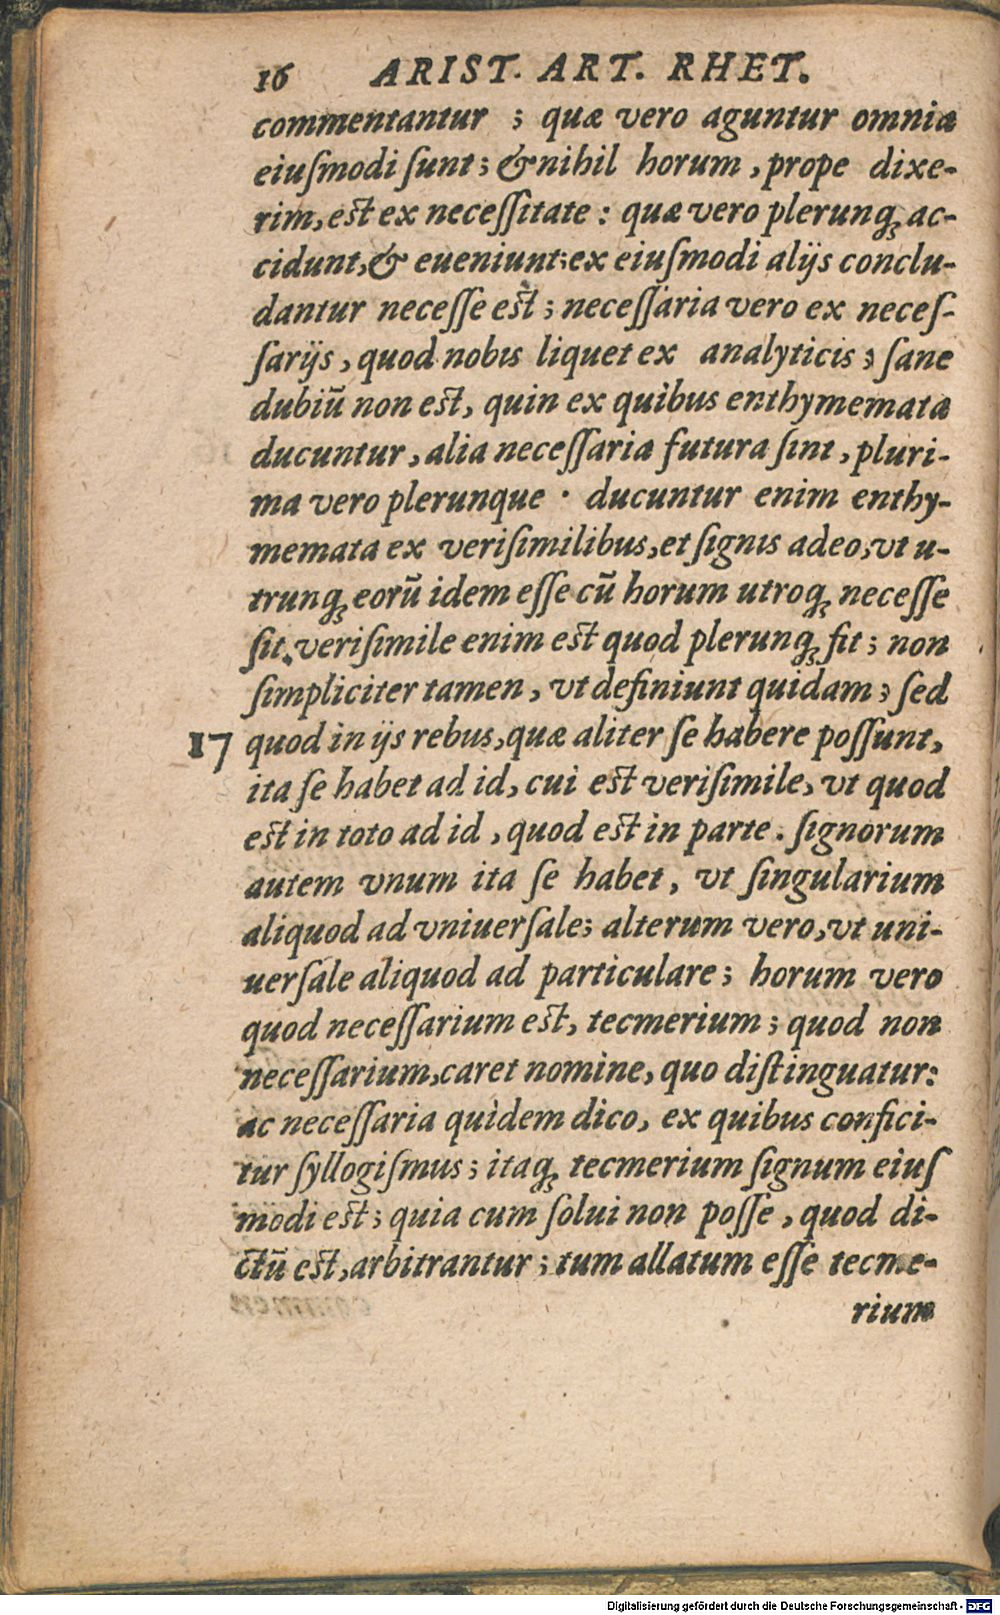 16 ARIST. ART. RHET.
commentantur ; quæ vero aguntur omnia
eiuſmodi ſunt; & nihil horum, prope dixe-
rim, est ex neceſſitate: quæ vero plerunq; ac-
cidunt, & eueniunt; ex eiuſmodi alijs conclu-
dantur neceſſe est; neceſſaria vero ex neceſ-
ſarijs, quod nobis liquet ex analyticis; ſane
dubiū non est, quin ex quibus enthymemata
ducuntur, alia neceſſaria futura ſint, pluri-
ma vero plerunque · ducuntur enim enthy-
memata ex veriſimilibus, et ſignis adeo, vt u-
trunq; eorū idem eſſe cū horum utroq; neceſſe
ſit. veriſimile enim est quod plerunq; fit; non
ſimpliciter tamen, vt definiunt quidam; ſed
17 quod in ijs rebus, quæ aliter ſe habere poſſunt,
ita ſe habet ad id, cui est veriſimile, vt quod
est in toto ad id, quod est in parte. ſignorum
autem vnum ita ſe habet, vt ſingularium
aliquod ad vniuerſale; alterum vero, vt uni-
uerſale aliquod ad particulare; horum vero
quod neceſſarium est, tecmerium; quod non
neceſſarium, caret nomine, quo diſtinguatur:
ac neceſſaria quidem dico, ex quibus confici-
tur ſyllogiſmus; itaq; tecmerium ſignum eiuſ
modi est; quia cum ſolui non poſſe, quod di-
ctū est, arbitrantur; tum allatum eſſe tecme-
rium
Digitalisierung gefördert durch die Deutsche Forschungsgemeinschaft - DFG